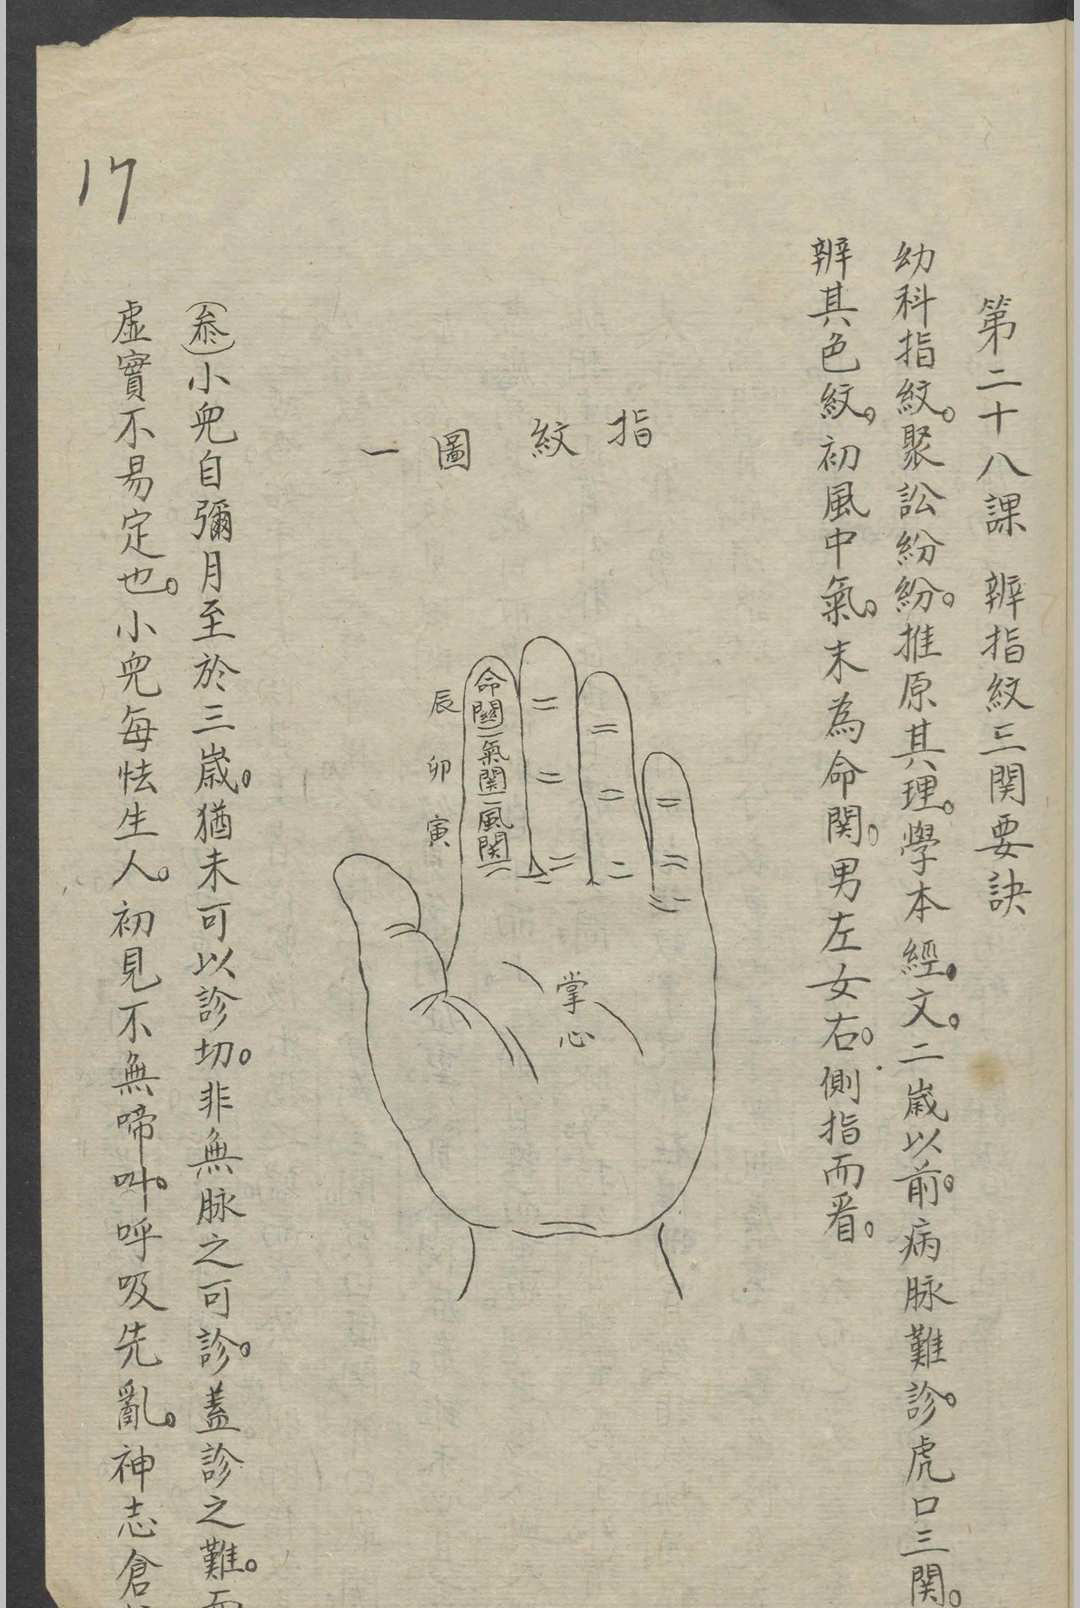 第二十八課 辨指紋三関要訣
幼科指紋。聚訟紛紛。推原其理。學本經。文。二歲以前。病脉難診。虎口三関。
辨其色紋。初風中氣。末為命関。男左女右。側指而看。
指紋圖一
命関
氣関
風関
辰
卯
寅
掌心
(叅)小兒自彌月至於三歲。猶未可以診切。非無脉之可診。蓋診之難。而
虛實不易定也。小兒每怯生人。初見不無啼叫。呼吸先亂。神志倉
17